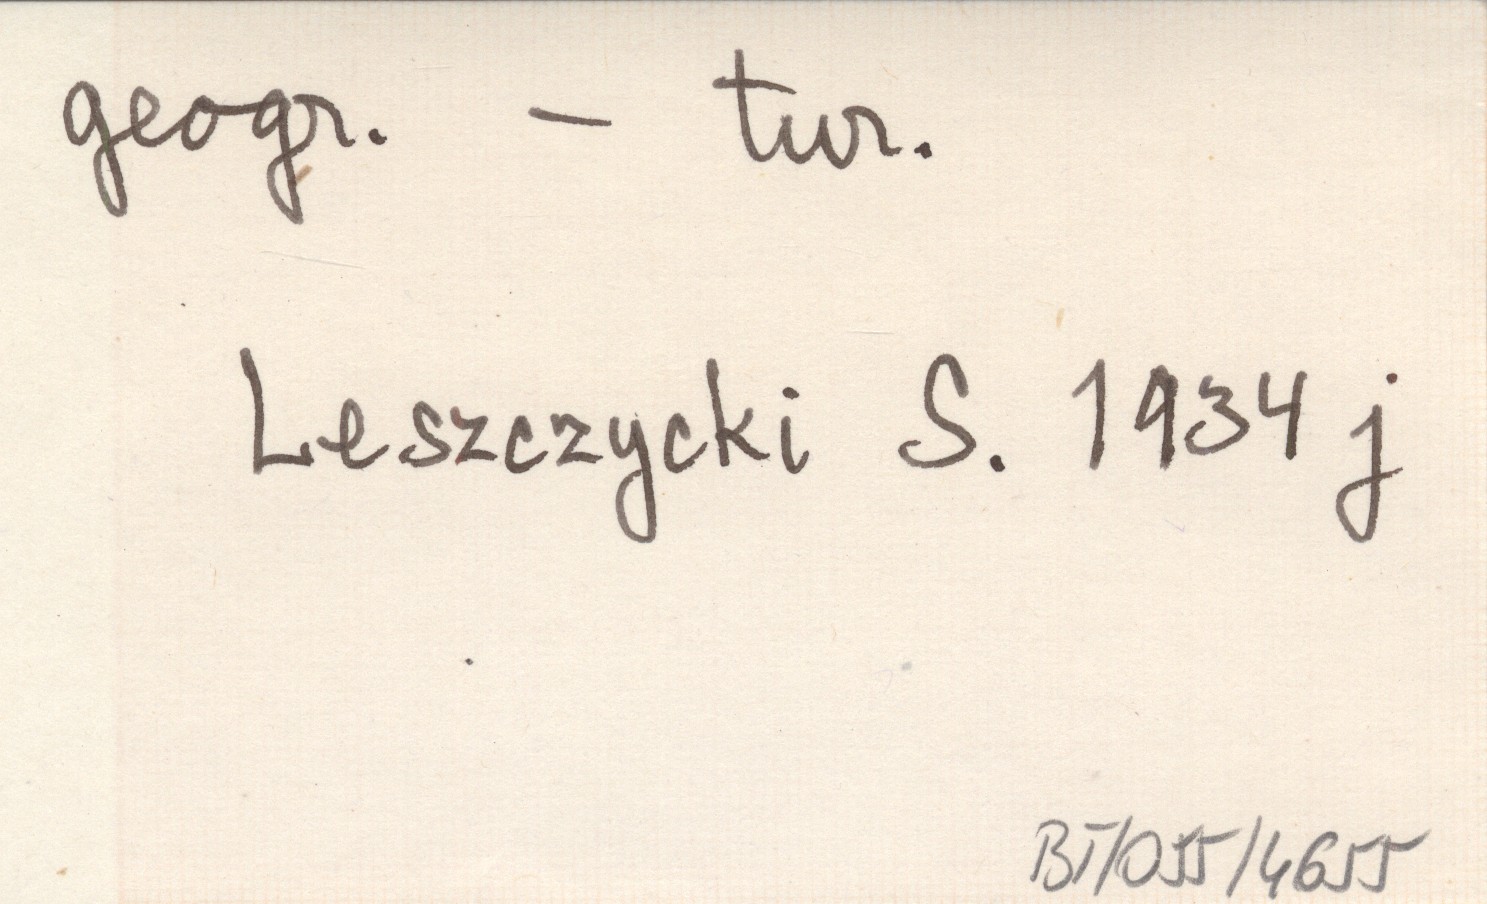 geogr. – tur.
Leszczycki S. 1934 j
BT/055/4655